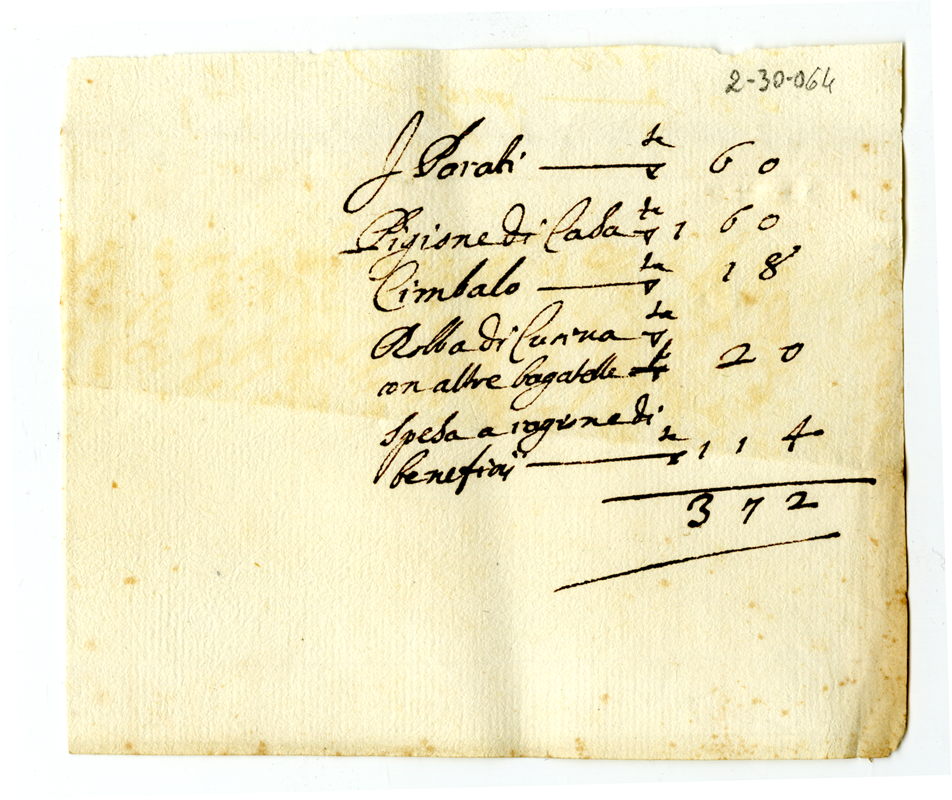 2-30-064
J Parati — 60
Pigione di Casa 160
Cimbalo — 18
Robba di Cucina
con altre bagatelle 20
spesa a ragione di
beneficij — 114
372